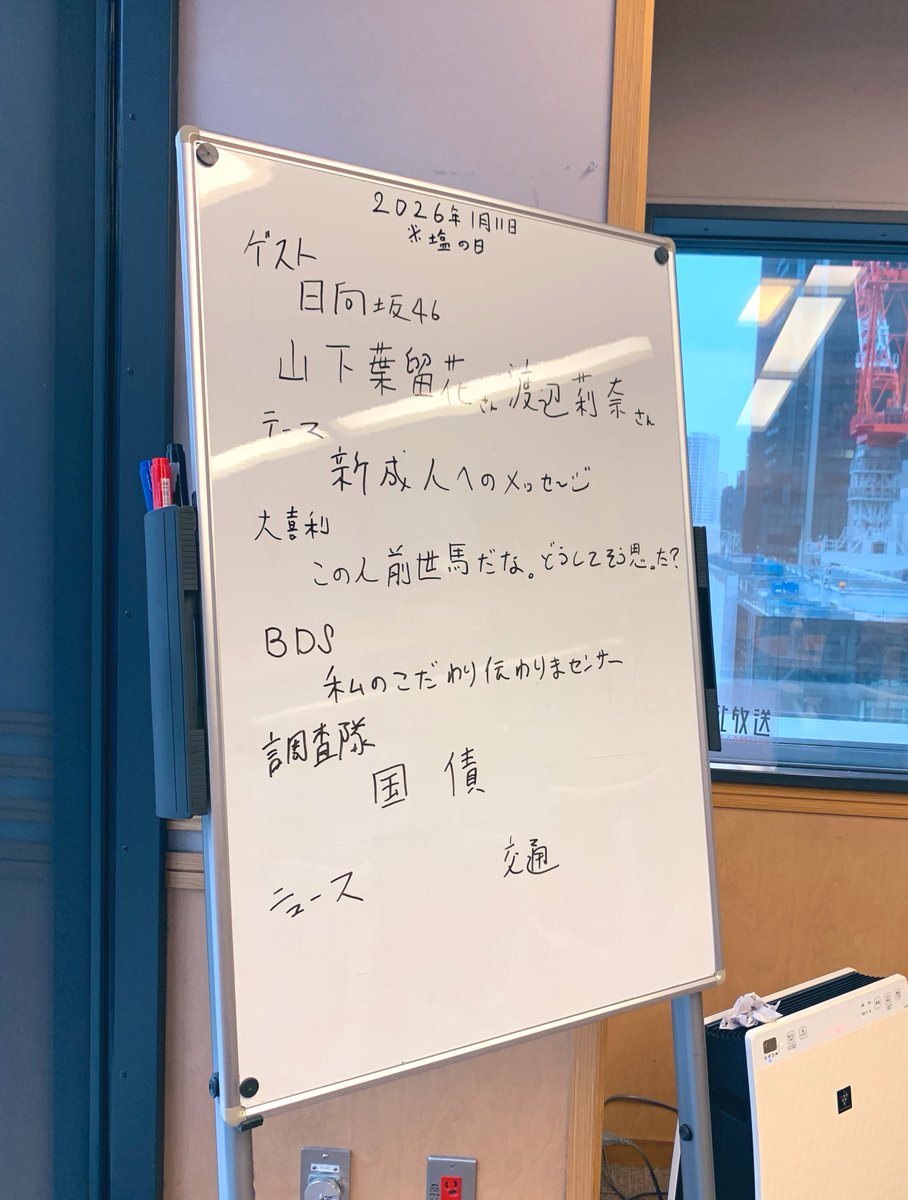 2026年1月11日
※塩の日
ゲスト
日向坂46
山下葉留花さん 渡辺莉奈さん
テーマ
新成人へのメッセージ
大喜利
この人前世馬だな。どうしてそう思った?
BDS
私のこだわり伝わりまセンサー
調査隊
国債
ニュース 交通
放送